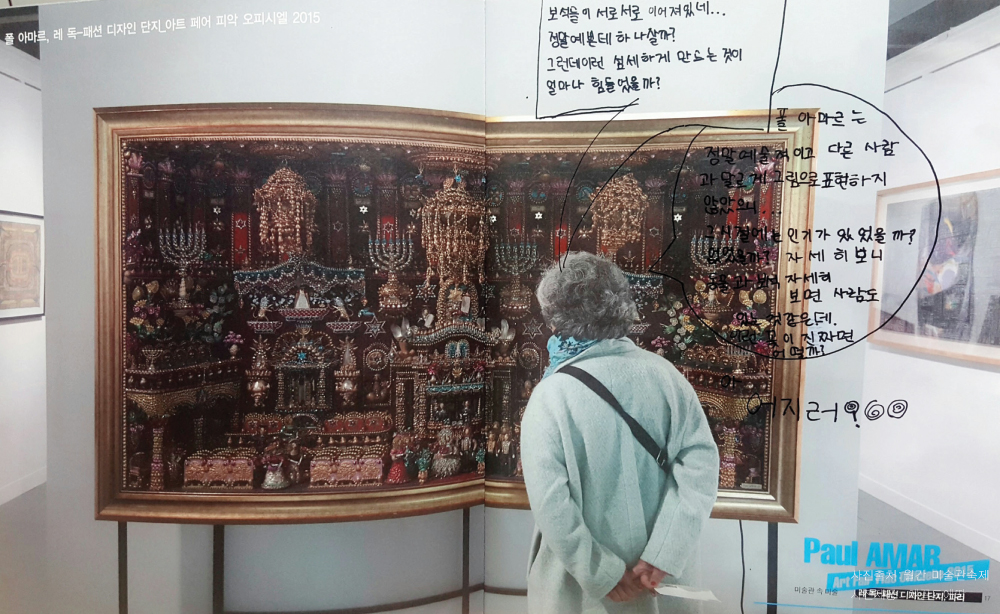 폴 아마르, 레 독-패션 디자인 단지_아트 페어 피악 오피시엘 2015
보석들이 서로서로 이어져있네...
정말예쁜데 하나살까?
그런데이런 섬세하게 만드는 것이
얼마나 힘들었을까?
폴 아마르는
정말예술적이고 다른 사람
과 달르게 그림으로표현하지
않았으니...
그시절에는인기가 있었을까?
없었을까? 자세히보니
보석 자세히
보면 사람도
있는 것같은데.
이 진짜면
어떨까?
아
어지러
Paul AMAR
사진출처 월간 미술관속 미술
레 독-패션 디자인 단지, 파리
미술관 속 미술
17